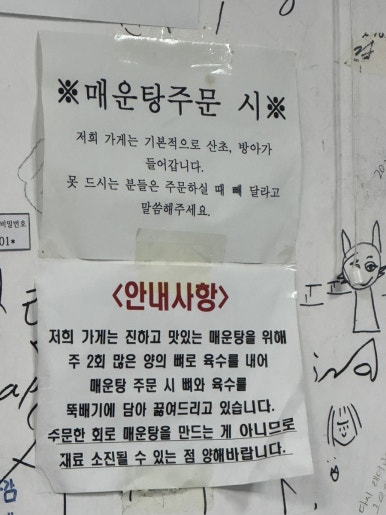 ※매운탕주문 시※
저희 가게는 기본적으로 산초, 방아가
들어갑니다.
못 드시는 분들은 주문하실 때 빼 달라고
말씀해주세요.
비밀번호
01*
<안내사항>
저희 가게는 진하고 맛있는 매운탕을 위해
주 2회 많은 양의 뼈로 육수를 내어
매운탕 주문 시 뼈와 육수를
뚝배기에 담아 끓여드리고 있습니다.
주문한 회로 매운탕을 만드는 게 아니므로
재료 소진될 수 있는 점 양해바랍니다.